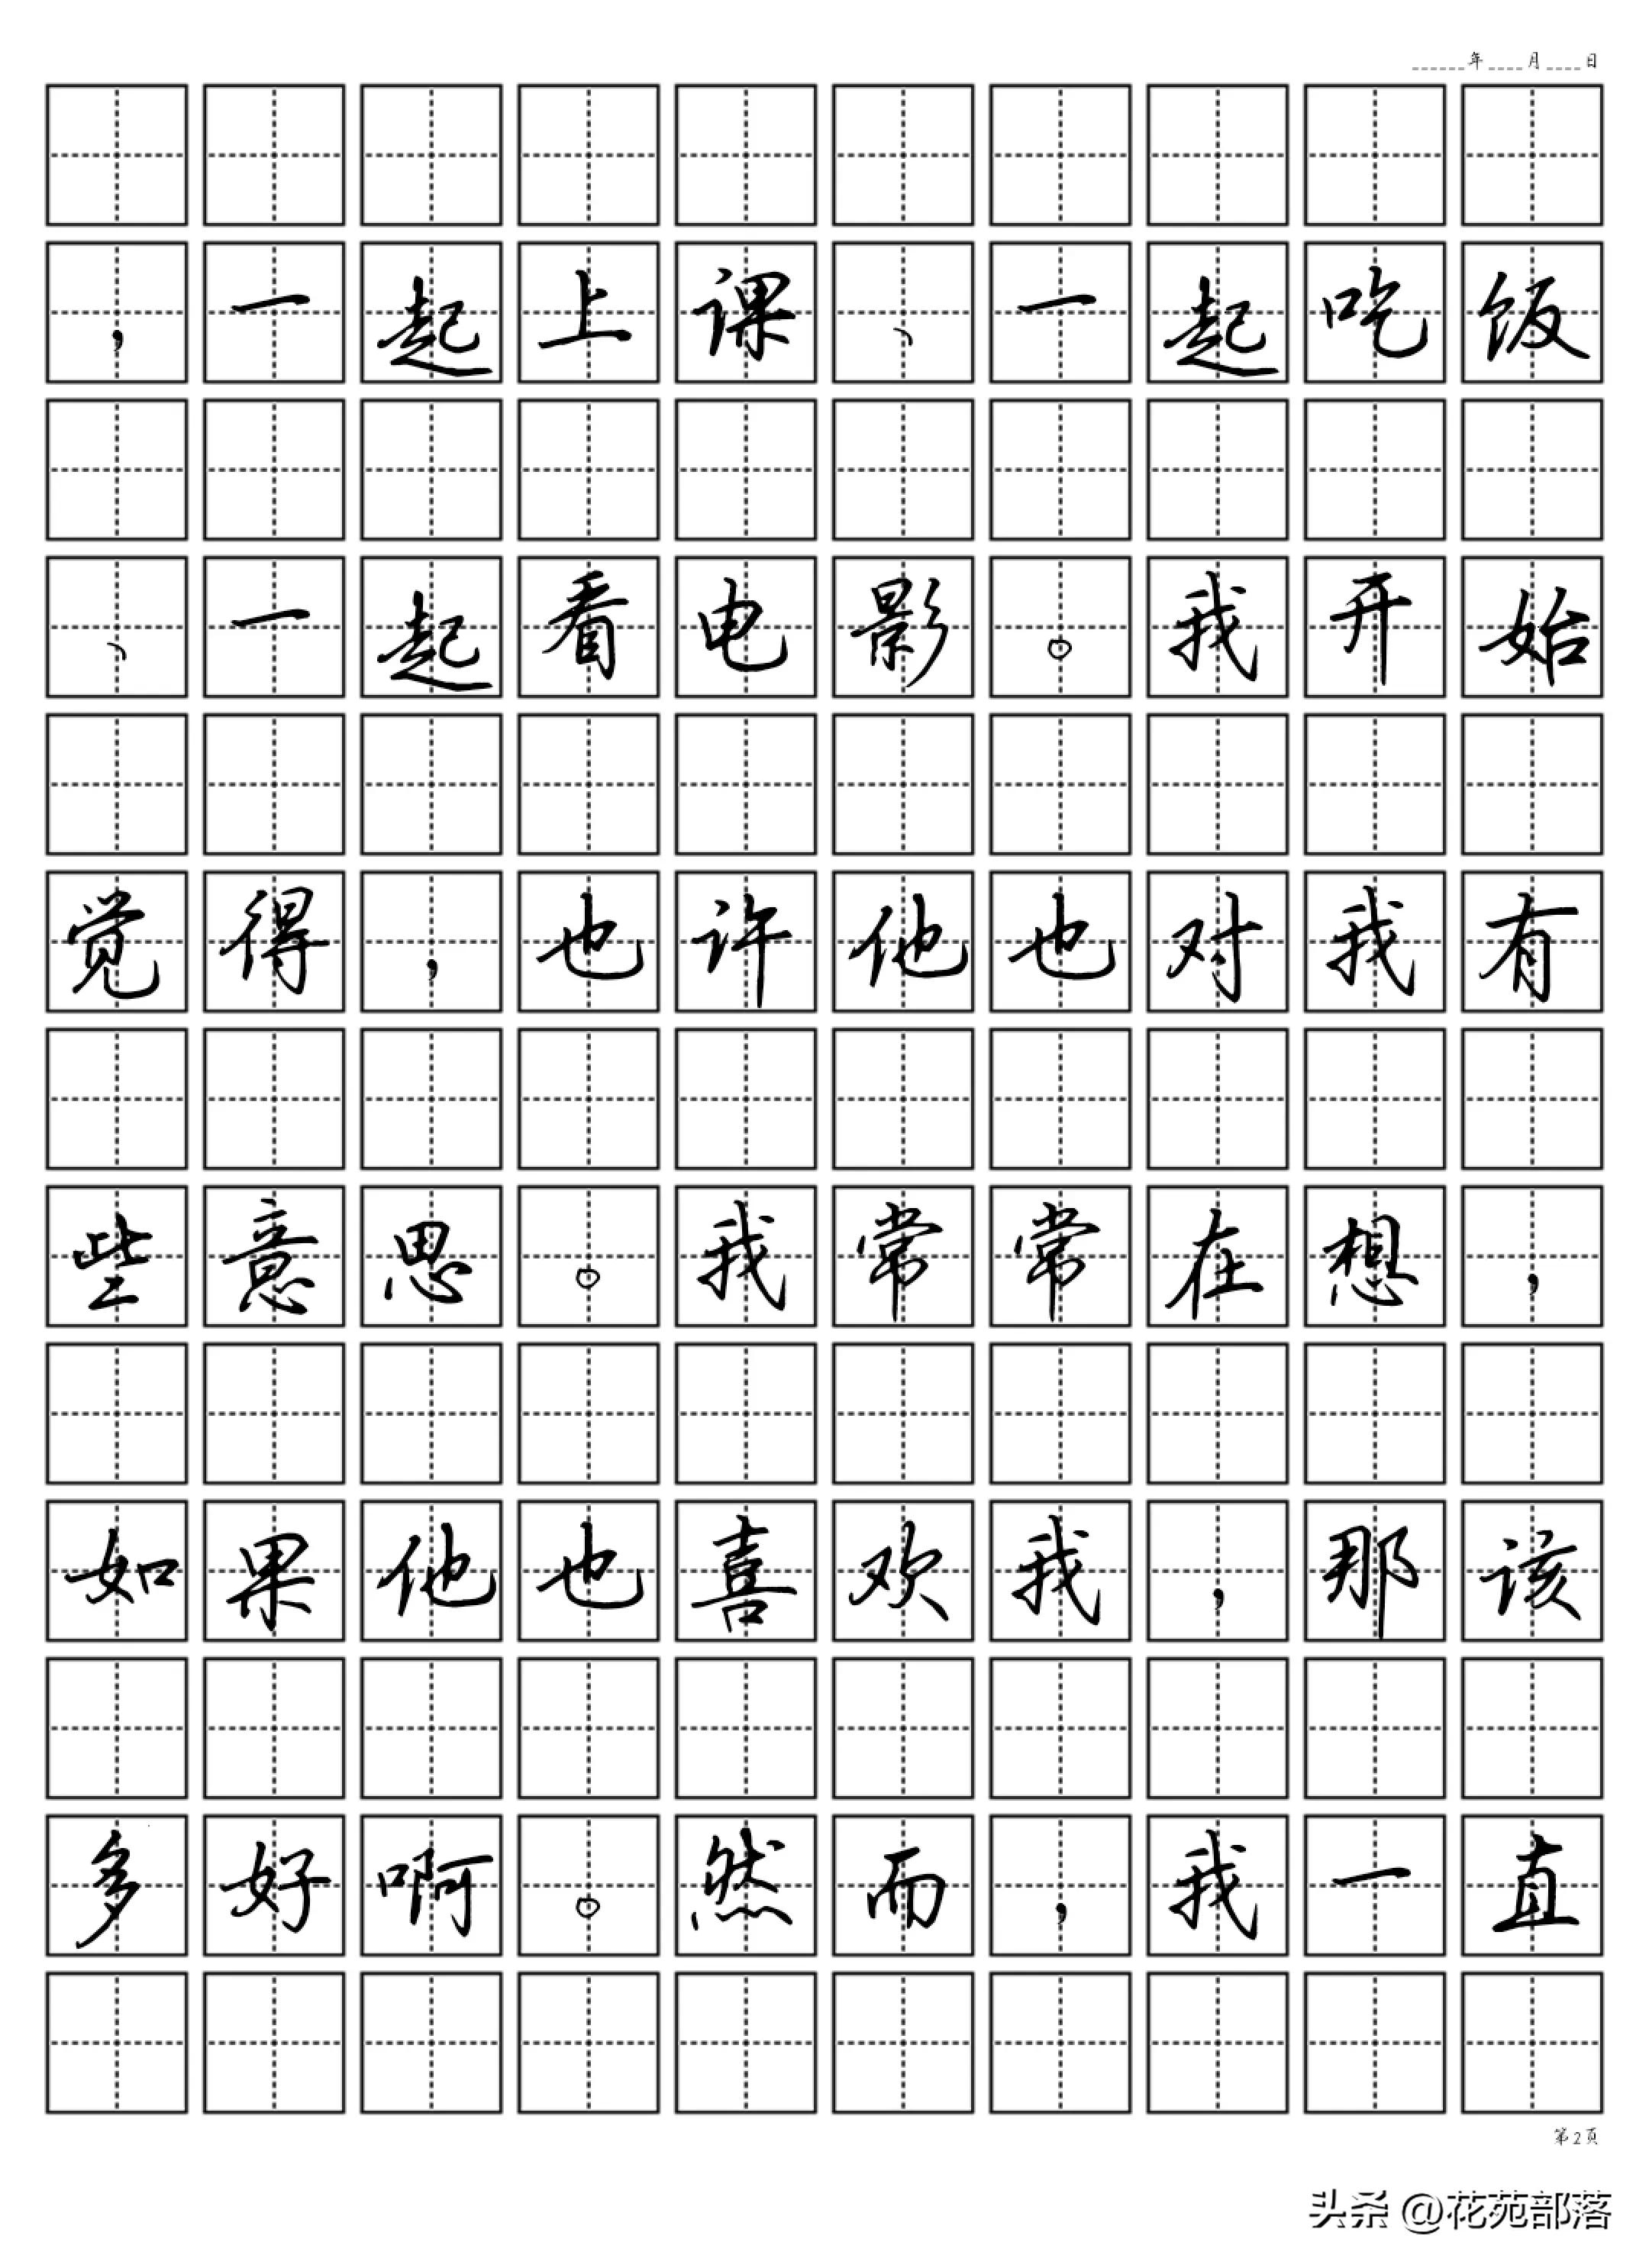 年 月 日
,一起上课、一起吃饭
、一起看电影。我开始
觉得,也许他也对我有
些意思。我常常在想,
如果他也喜欢我,那该
多好啊。然而,我一直
第2页
头条 @花苑部落